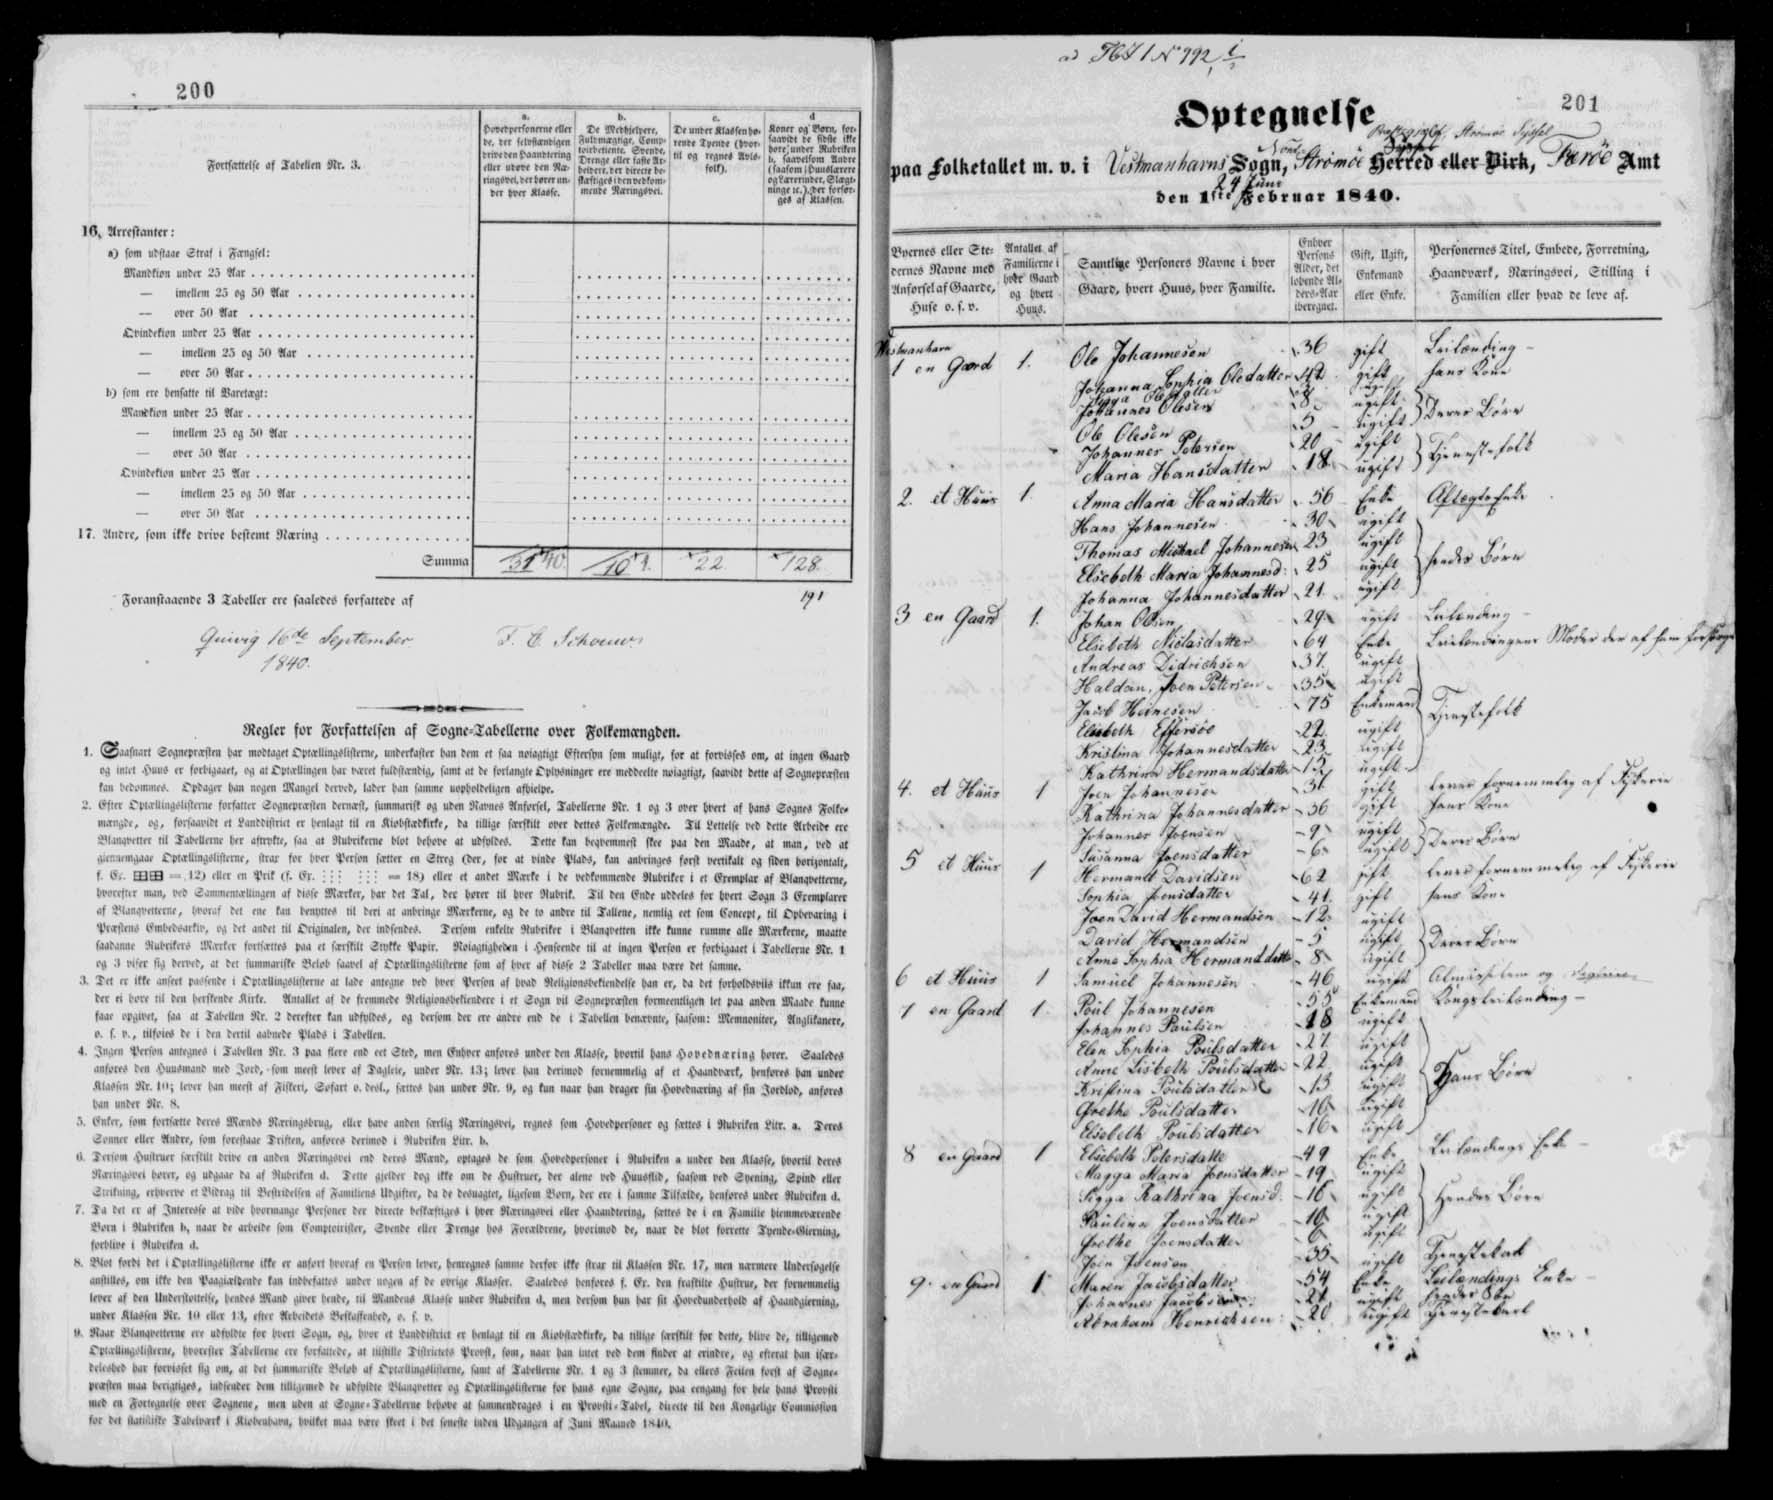 200
Fortsættelse af Tabellen Nr. 3.
a.
Hovedpersonerne eller de, der selvstændigen drive den Haandtering eller udøve den Næringsvei, der hører under hver Klasse.
b.
De Medhjelpere, Fuldmægtige, Comptoirbetjente, Svende, Drenge eller faste Arbeidere, der directe beskæftiges i den vedkommende Næringsvei.
c.
De under Klassen hørende Tyende (hvortil og regnes Avlsfolk).
d
Koner og Børn, forsaavidt de sidste ikke høre under Rubriken b, saavelsom Andre (saasom Huuslærere og Lærerinder, Slægtninge &c.), der forsørges af Klassen.
16. Arrestanter:
a) som udstaae Straf i Fængsel:
Mandkiøn under 25 Aar
— imellem 25 og 50 Aar
— over 50 Aar
Qvindekiøn under 25 Aar
— imellem 25 og 50 Aar
— over 50 Aar
b) som ere hensatte til Varetægt:
Mandkiøn under 25 Aar
— imellem 25 og 50 Aar
— over 50 Aar
Qvindekiøn under 25 Aar
— imellem 25 og 50 Aar
— over 50 Aar
17. Andre, som ikke drive bestemt Næring
Summa 22. 128.
191
Foranstaaende 3 Tabeller ere saaledes forfattede af
Qvivig 16de September
1840.
Regler for Forfattelsen af Sogne-Tabellerne over Folkemængden.
1. Saasnart Sognepræsten har modtaget Optællingslisterne, underkaster han dem et saa nøiagtigt Eftersyn som muligt, for at forvisses om, at ingen Gaard
og intet Huus er forbigaaet, og at Optællingen har været fuldstændig, samt at de forlangte Oplysninger ere meddeelte nøiagtigt, saavidt dette af Sognepræsten
kan bedømmes. Opdager han nogen Mangel derved, lader han samme uopholdeligen afhjelpe.
2. Efter Optællingslisterne forfatter Sognepræsten dernæst, summarisk og uden Navnes Anførsel, Tabellerne Nr. 1 og 3 over hvert af hans Sognes Folke-
mængde, og, forsaavidt et Landdistrict er henlagt til en Kiøbstædkirke, da tillige særskilt over dettes Folkemængde. Til Lettelse ved dette Arbeide ere
Blanqvetter til Tabellerne her aftrykte, saa at Rubrikerne blot behøve at udfyldes. Dette kan beqvemmest skee paa den Maade, at man, ved at
giennemgaae Optællingslisterne, strax for hver Person sætter en Streg (der, for at vinde Plads, kan anbringes først vertikalt og siden horizontalt,
f. Ex. = 12) eller en Prik (f. Ex. = 18) eller et andet Mærke i de vedkommende Rubriker i et Exemplar af Blanqvetterne,
hvorefter man, ved Sammentællingen af disse Mærker, har det Tal, der hører til hver Rubrik. Til den Ende uddeles for hvert Sogn 3 Exemplarer
af Blanqvetterne, hvoraf det ene kan benyttes til deri at anbringe Mærkerne, og de to andre til Tallene, nemlig eet som Concept, til Opbevaring i
Præstens Embedsarkiv, og det andet til Originalen, der indsendes. Dersom enkelte Rubriker i Blanqvetten ikke kunne rumme alle Mærkerne, maatte
saadanne Rubrikers Mærker fortsættes paa et særskilt Stykke Papir. Nøiagtigheden i Henseende til at ingen Person er forbigaaet i Tabellerne Nr. 1
og 3 viser sig derved, at det summariske Beløb saavel af Optællingslisterne som af hver af disse 2 Tabeller maa være det samme.
3. Det er ikke anseet passende i Optællingslisterne at lade antegne ved hver Person af hvad Religionsbekiendelse han er, da det forholdsviis ikkun ere faa,
der ei høre til den herskende Kirke. Antallet af de fremmede Religionsbekiendere i et Sogn vil Sognepræsten formeentligen let paa anden Maade kunne
faae opgivet, saa at Tabellen Nr. 2 derefter kan udfyldes, og dersom der ere andre end de i Tabellen benævnte, saasom: Memnoniter, Anglikanere,
o. s. v., tilføies de i den dertil aabnede Plads i Tabellen.
4. Ingen Person antegnes i Tabellen Nr. 3 paa flere end eet Sted, men Enhver anføres under den Klasse, hvortil hans Hovednæring hører. Saaledes
anføres den Huusmand med Jord, som meest lever af Dagleie, under Nr. 13; lever han derimod fornemmelig af et Haandværk, henføres han under
Klassen Nr. 10; lever han meest af Fiskeri, Søfart o. desl., sættes han under Nr. 9, og kun naar han drager sin Hovednæring af sin Jordlod, anføres
han under Nr. 8.
5. Enker, som fortsætte deres Mænds Næringsbrug, eller have anden særlig Næringsvei, regnes som Hovedpersoner og sættes i Rubriken Litr. a. Deres
Sønner eller Andre, som forestaae Driften, anføres derimod i Rubriken Litr. b.
6. Dersom Hustruer særskilt drive en anden Næringsvei end deres Mænd, optages de som Hovedpersoner i Rubriken a under den Klasse, hvortil deres
Næringsvei hører, og udgaae da af Rubriken d. Dette gjelder dog ikke om de Hustruer, der alene ved Huusflid, saasom ved Spening, Spind eller
Strikning, erhverve et Bidrag til Bestridelsen af Familiens Udgifter, da de desuagtet, ligesom Børn, der ere i samme Tilfælde, henføres under Rubriken d.
7. Da det er af Interesse at vide hvormange Personer der directe beskæftiges i hver Næringsvei eller Haandtering, sættes de i en Familie hjemmeværende
Børn i Rubriken b, naar de arbeide som Comptoirister, Svende eller Drenge hos Forældrene, hvorimod de, naar de blot forrette Tyende-Gierning,
forblive i Rubriken d.
8. Blot fordi det i Optællingslisterne ikke er anført hvoraf en Person lever, henregnes samme derfor ikke strax til Klassen Nr. 17, men nærmere Undersøgelse
anstilles, om ikke den Paagiældende kan indbefattes under nogen af de øvrige Klasser. Saaledes henføres f. Ex. den fraskilte Hustrue, der fornemmelig
lever af den Understøttelse, hendes Mand giver hende, til Mandens Klasse under Rubriken d, men dersom hun har sit Hovedunderhold af Haandgierning,
under Klassen Nr. 10 eller 13, efter Arbeidets Beskaffenhed, o. s. v.
9. Naar Blanqvetterne ere udfyldte for hvert Sogn, og, hvor et Landdistrict er henlagt til en Kiøbstædkirke, da tillige særskilt for dette, blive de, tilligemed
Optællingslisterne, hvorefter Tabellerne ere forfattede, at tilstille Districtets Provst, som, naar han intet ved dem finder at erindre, og efterat han især-
deleshed har forvisset sig om, at det summariske Beløb af Optællingslisterne, samt af Tabellerne Nr. 1 og 3 stemmer, da ellers Feilen først af Sogne-
præsten maa berigtiges, indsender dem tilligemed de udfyldte Blanqvetter og Optællingslisterne for hans egne Sogne, paa eengang for hele hans Provsti
med en Fortegnelse over Sognene, men uden at Sogne-Tabellerne behøve at sammendrages i en Provsti-Tabel, directe til den Kongelige Commission
for det statistiske Tabelværk i Kiøbenhavn, hvilket maa være skeet i det seneste inden Udgangen af Juni Maaned 1840.
201
Optegnelse
paa Folketallet m. v. i Vestmanhavns Sogn, Strømöe Herred eller Birk, Færöe Amt
24 Juni
den 1ste Februar 1840.
Byernes eller Stedernes Navne med Anførsel af Gaarde, Huse o. s. v.
Antallet af Familierne i hver Gaard og hvert Huus.
Samtlige Personers Navne i hver Gaard, hvert Huus, hver Familie.
Enhver Persons Alder, det løbende Alders-Aar iberegnet.
Gift, Ugift, Enkemand eller Enke.
Personernes Titel, Embede, Forretning, Haandværk, Næringsvei, Stilling i Familien eller hvad de leve af.
Westmanhavn
1 en Gaard 1. Ole Johannesen 36 gift Leilænding
Johanna Sophia Olesdatter 42 gift hans Kone
Johannes Olesen ugift Deres Börn
Ole Olesen 5 ugift
Johannes Petersen 20 ugift Tjenestefolk
Maria Hansdatter 18 ugift
2. et Huus 1 Anna Maria Hansdatter 56 Enke Aftægtsenke
Hans Johannesen 30 ugift
Thomas Michael Johannesen 23 ugift hendes Börn
Elsebeth Maria Johannesd: 25 ugift
Johanna Johannesdatter 21 ugift
3 en Gaard 1. Johan Olsen 29 ugift Leilænding
Elsebeth Niclasdatter 64 Enke
Andreas Didrichsen 37 ugift
Haldan Joen Petersen 35 ugift
Jacob Heinesen 75 Enkemand Tjenestefolk
Elsebeth Effersøe 22 ugift
Kristina Johannesdatter 23 ugift
Kathrina Hermandsdatter ugift
4. et Huus 1 Joen Johannesen gift lever fornemmelig af Fiskerie
Kathrina Johannesdatter 36 gift hans Kone
Johannes Joensen 9 ugift Deres Börn
Susanna Joensdatter 6 ugift
5 et Huus 1 Hermand Davidsen 62 gift lever fornemmelig af Fiskerie
Sophia Joensdatter 41 gift hans Kone
Joen David Hermandsen 12 ugift
David Hermandsen 5 ugift Deres Börn
Anne Sophia Hermandsdatter 8 ugift
6 et Huus 1 Samuel Johannesen 46 ugift
7 en Gaard 1. Poul Johannesen 55 Enkemand Kongsleilænding
Johannes Poulsen 18 ugift
Elen Sophia Poulsdatter 27 ugift
Anne Lisbeth Poulsdatter 22 ugift Hans Börn
Kristina Poulsdatter 13 ugift
Grethe Poulsdatter 10 ugift
Elsebeth Poulsdatter 16 ugift
8 en Gaard 1 Elsebeth Petersdatter 49 Enke Leilændings Enke
Magga Maria Joensdatter 19 ugift
Sigga Kathrina Joensd. 16 ugift Hendes Börn
Paulina Joensdatter 10 ugift
Grethe Joensdatter 6 ugift
Joen Joensen 35 ugift Tjenestekarl
9. en Gaard 1 Maren Jacobsdatter 54 Enke Leilændings Enke
Johannes Jacobsen ugift
Abraham Henrichsen 20 ugift Tjenestekarl